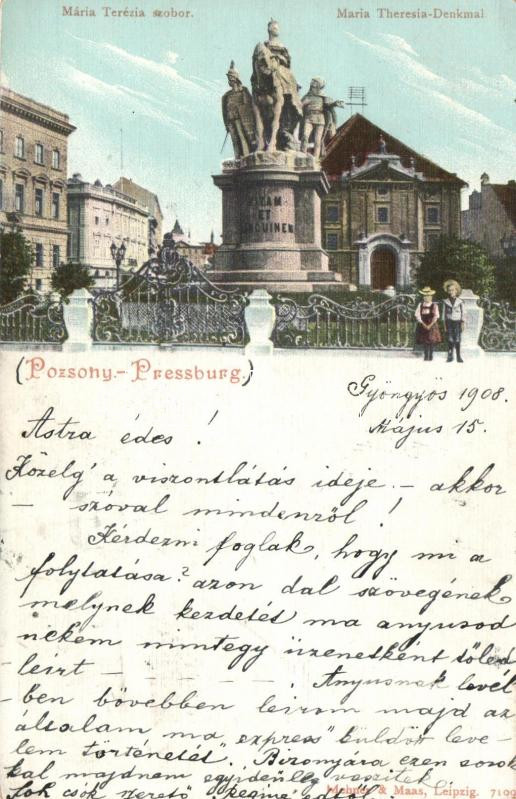 Mária Terézia szobor.
Maria Theresia-Denkmal
VITAM
ET
SANGUINEM
(Pozsony.-Pressburg.)
Gyöngyös 1908.
Május 15.
Astra édes!
Közelg' a viszontlátás ideje - akkor
- szóval mindenről!
Kérdezni foglak, hogy mi a
folytatása? azon dal szövegének
melynek kezdetét ma anyusod
nekem mintegy üzenetként tőled
leirt - Anyusnak levél-
ben bővebben leirom majd az
általam ma "express" küldött leve-
lem történetét". Bizonyára ezen sorok-
kal majdnem egyidejüleg veszitek
sok csók szerető "Regina"
Mehner & Maas, Leipzig. 7199